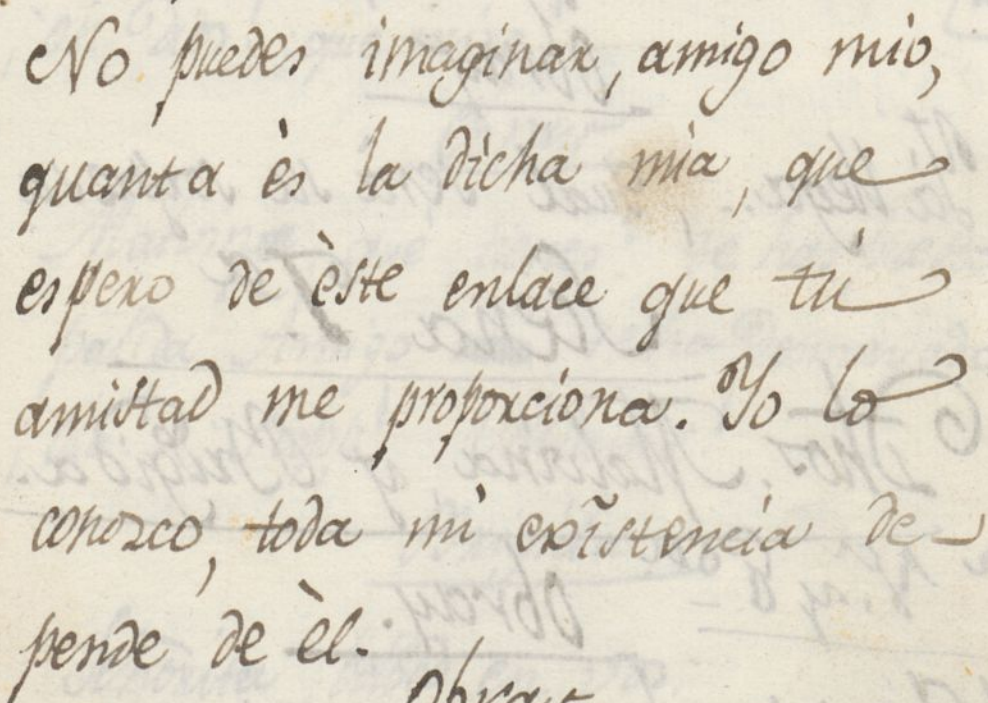 No puedes imaginar, amigo mio,
quanta ès la dicha mia, que
espero de èste enlace que tú
amistad me proporciona. Yo lo
conozco, toda mi exîstencia de-
pende de èl.